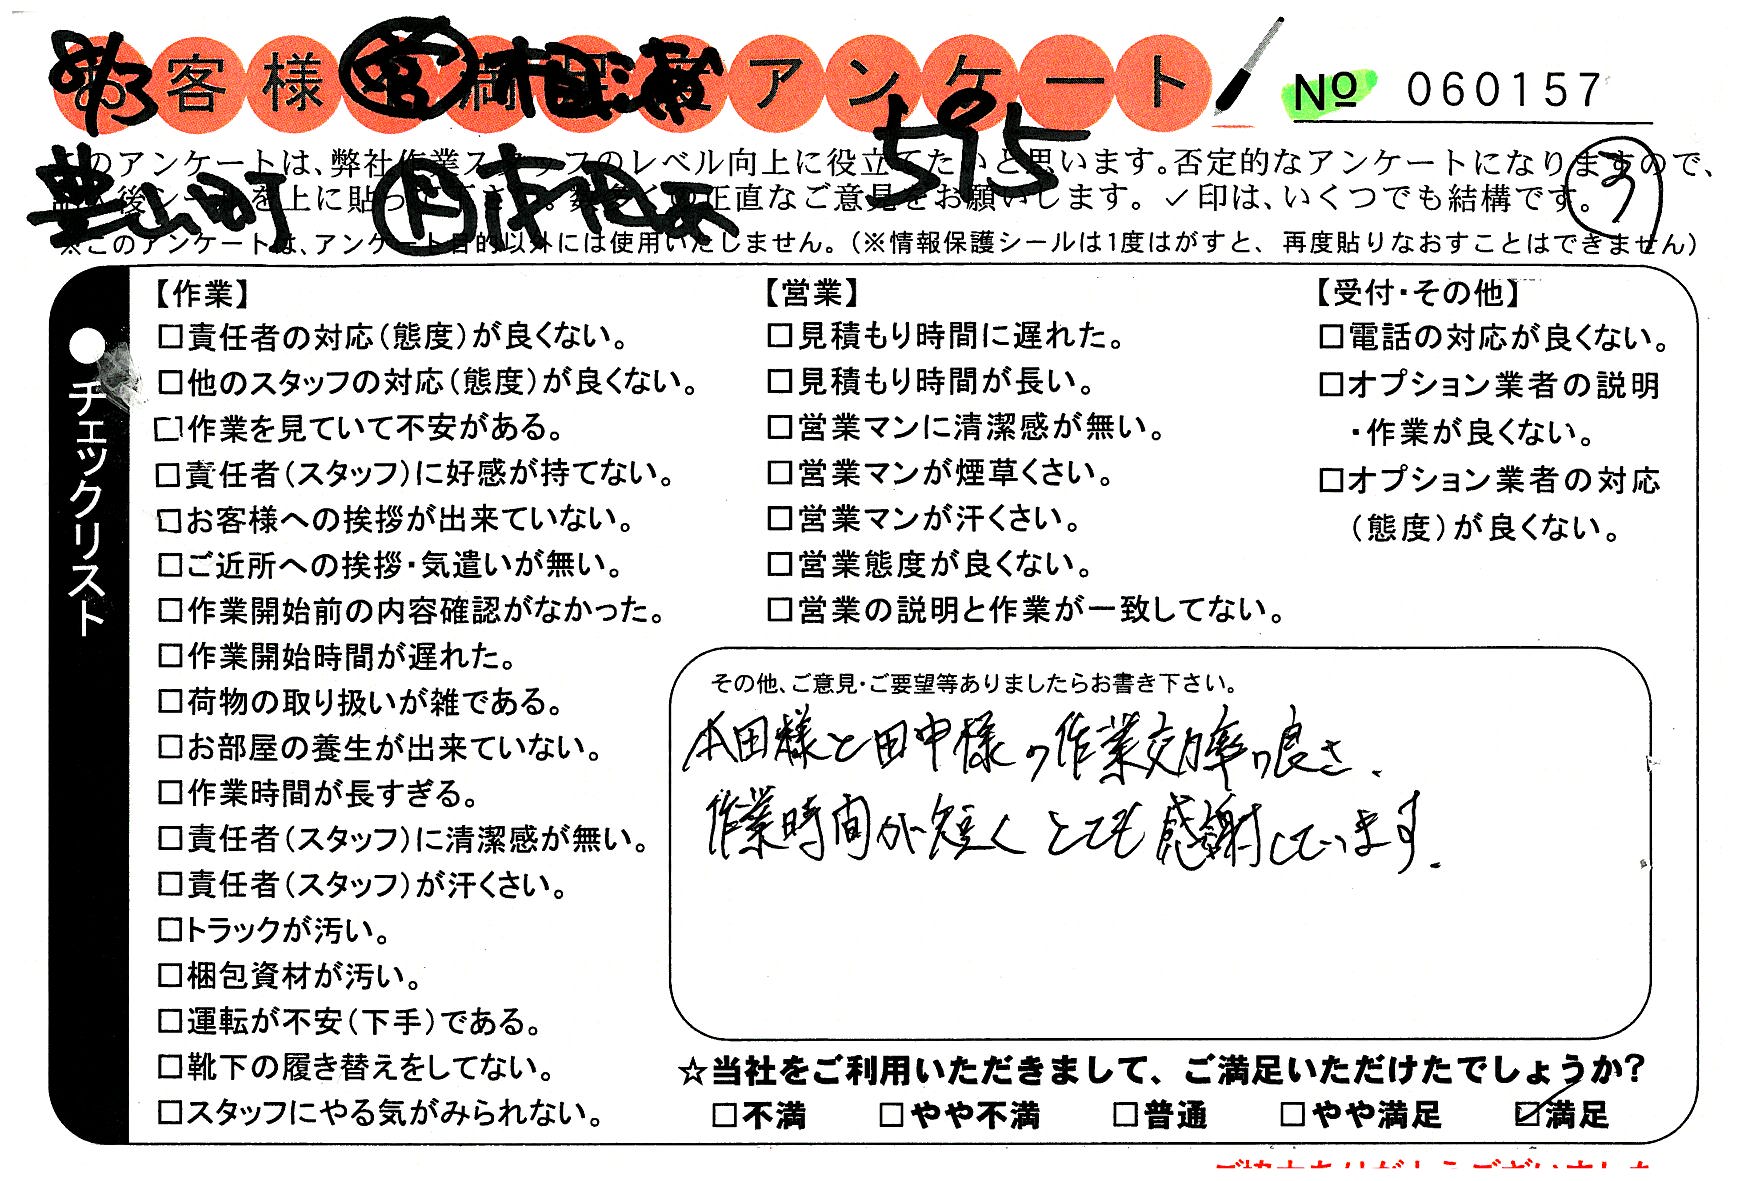 お客様満足度アンケート
8/3
№ 060157
595
このアンケートは、弊社作業スタッフのレベル向上に役立てたいと思います。否定的なアンケートになりますので、
記入後シールを上に貼って下さい。数多くの正直なご意見をお願いします。✓印は、いくつでも結構です。
豊山町
※このアンケートは、アンケート目的以外には使用いたしません。（※情報保護シールは1度はがすと、再度貼りなおすことはできません）
●チェックリスト
【作業】
□責任者の対応（態度）が良くない。
□他のスタッフの対応（態度）が良くない。
□作業を見ていて不安がある。
□責任者（スタッフ）に好感が持てない。
□お客様への挨拶が出来ていない。
□ご近所への挨拶・気遣いが無い。
□作業開始前の内容確認がなかった。
□作業開始時間が遅れた。
□荷物の取り扱いが雑である。
□お部屋の養生が出来ていない。
□作業時間が長すぎる。
□責任者（スタッフ）に清潔感が無い。
□責任者（スタッフ）が汗くさい。
□トラックが汚い。
□梱包資材が汚い。
□運転が不安（下手）である。
□靴下の履き替えをしてない。
□スタッフにやる気がみられない。
【営業】
□見積もり時間に遅れた。
□見積もり時間が長い。
□営業マンに清潔感が無い。
□営業マンが煙草くさい。
□営業マンが汗くさい。
□営業態度が良くない。
□営業の説明と作業が一致してない。
【受付・その他】
□電話の対応が良くない。
□オプション業者の説明
・作業が良くない。
□オプション業者の対応
（態度）が良くない。
その他、ご意見・ご要望等ありましたらお書き下さい。
本田様と田中様の作業効率の良さ、
作業時間が短くとても感謝しています。
☆当社をご利用いただきまして、ご満足いただけたでしょうか？
□不満 □やや不満 □普通 □やや満足 ☑満足
ご協力ありがとうございました